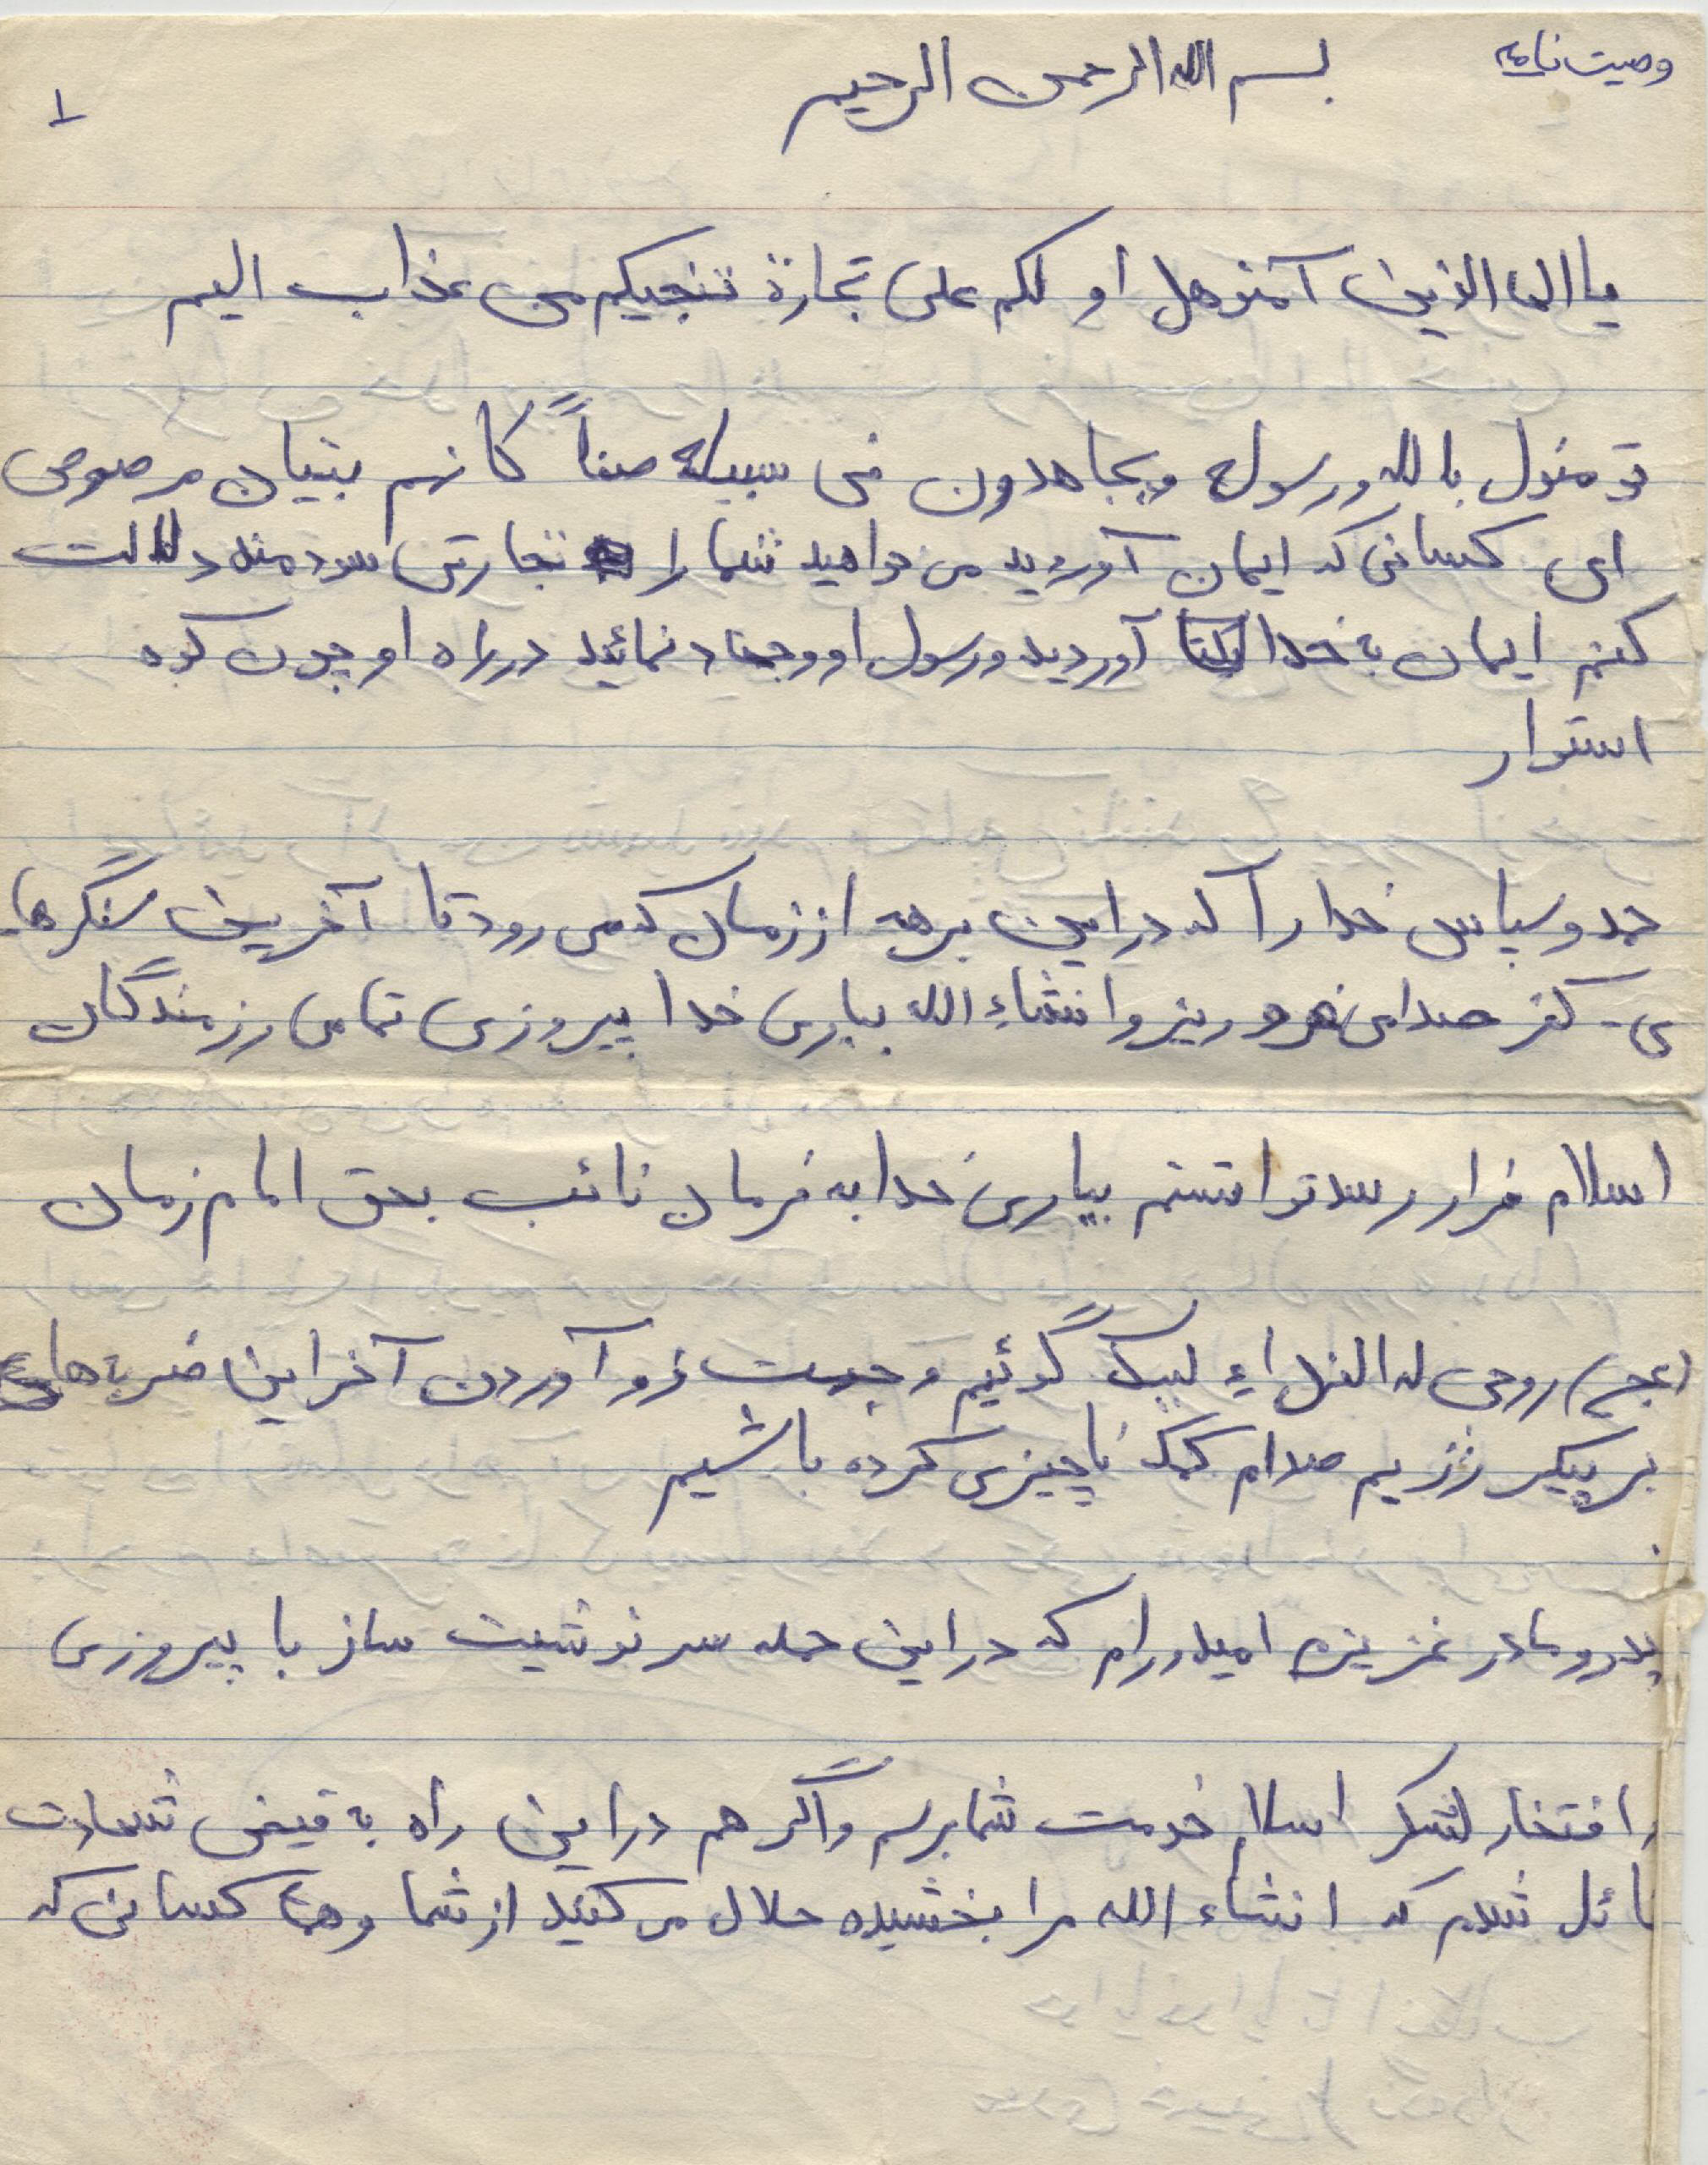 وصیت نامه
بسم الله الرحمن الرحیم
۱
یا الها الذین آمنو هل او لکم علی تجارة تنجیکم من عذاب الیم
تومنول بالله ورسوله ویجاهدون فی سبیله صفاً کانهم بنیان مرصوص
ای کسانی که ایمان آوردید می خواهید شما را تجارتی سودمند دلالت
کنم ایمان به خدا آوردید و رسول او و جهاد نمائید در راه او چون کوه
استوار
حمد و سپاس خدا را که در این برهه از زمان که می رود تا آخرین سنگرها-
ی- کفر صدامی فرو ریزد انشاءِ الله بیاری خدا پیروزی تمامی رزمندگان
اسلام فرار رسد توانستم بیاری خدا به فرمان نائب بحق امام زمان
(عج) روحی له الفداءِ لبیک گوئیم و جهت فرو آوردن آخراین ضربه های
بر پیکر رژیم صدام کمک ناچیزی کرده باشیم
پدر و مادر عزیزم امیدورام که در این حمله سرنوشیت ساز با پیروزی
و افتخار لشکر اسلام خدمت شما برسم و اگر هم در این راه به فیض شهادت
نائل شدم که انشاء الله مرا بخشیده حلال می کنید از شما و همه کسانی که